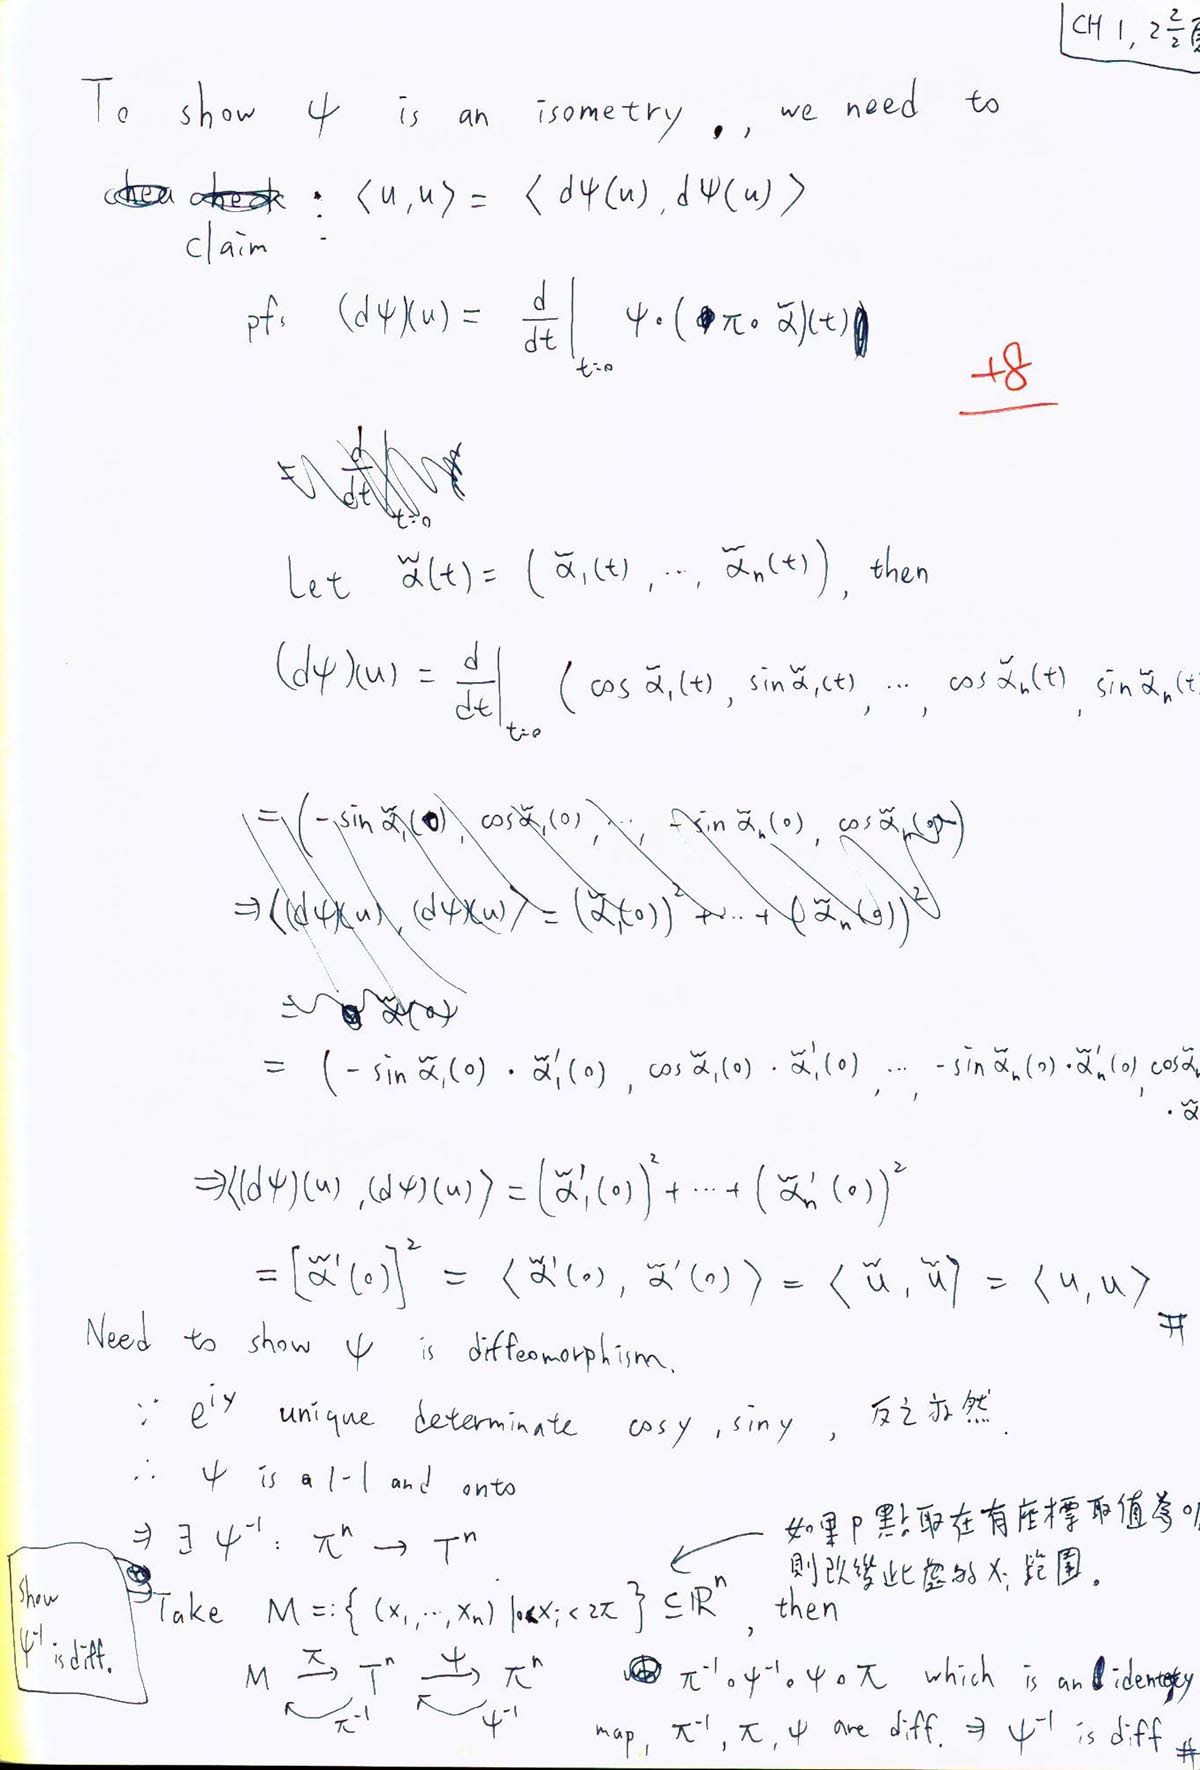 CH 1, 2 2/2 頁
To show ψ is an isometry, we need to
claim : ⟨u,u⟩ = ⟨dψ(u), dψ(u)⟩
pf: (dψ)(u) = d/dt|t=0 ψ∘(π∘α̃)(t)
+8
Let α̃(t) = (α̃₁(t), ..., α̃ₙ(t)), then
(dψ)(u) = d/dt|t=0 (cos α̃₁(t), sin α̃₁(t), ..., cos α̃ₙ(t), sin α̃ₙ(t
= (-sin α̃₁(0), cos α̃₁(0), ..., -sin α̃ₙ(0), cos α̃ₙ(0))
⇒ ⟨(dψ)(u), (dψ)(u)⟩ = (α̃₁(0))² + ... + (α̃ₙ(0))²
= α̃(0)
= (-sin α̃₁(0) · α̃₁'(0), cos α̃₁(0) · α̃₁'(0), ..., -sin α̃ₙ(0) · α̃ₙ'(0), cos α̃ₙ
· α̃
⇒ ⟨(dψ)(u), (dψ)(u)⟩ = (α̃₁'(0))² + ... + (α̃ₙ'(0))²
= [α̃'(0)]² = ⟨α̃'(0), α̃'(0)⟩ = ⟨ũ, ũ⟩ = ⟨u, u⟩ #
Need to show ψ is diffeomorphism.
∵ e^{iy} unique determinate cos y, sin y, 反之亦然.
∴ ψ is a 1-1 and onto
⇒ ∃ ψ⁻¹: πⁿ → Tⁿ
如果 p 點取在有座標取值為 0
則改變此處的 xᵢ 範圍.
show
ψ⁻¹ is diff.
Take M =: {(x₁, ..., xₙ) | 0<xᵢ<2π} ⊆ ℝⁿ, then
M →π Tⁿ →ψ πⁿ π⁻¹∘ψ⁻¹∘ψ∘π which is an identity
π⁻¹ ψ⁻¹ map, π⁻¹, π, ψ are diff. ⇒ ψ⁻¹ is diff #